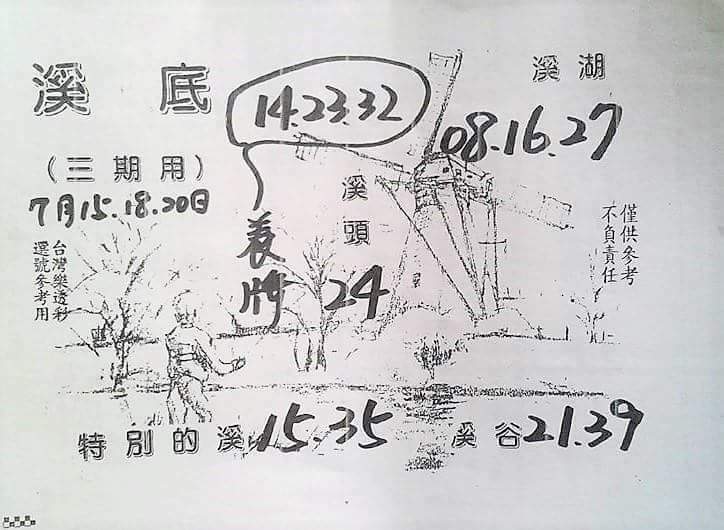 溪底
14.23.32
溪湖
08.16.27
(三期用)
7月15.18.20日
養牌
溪頭
24
僅供參考
不負責任
台灣樂透彩
選號參考用
特別的溪 15.35
溪谷 21.39